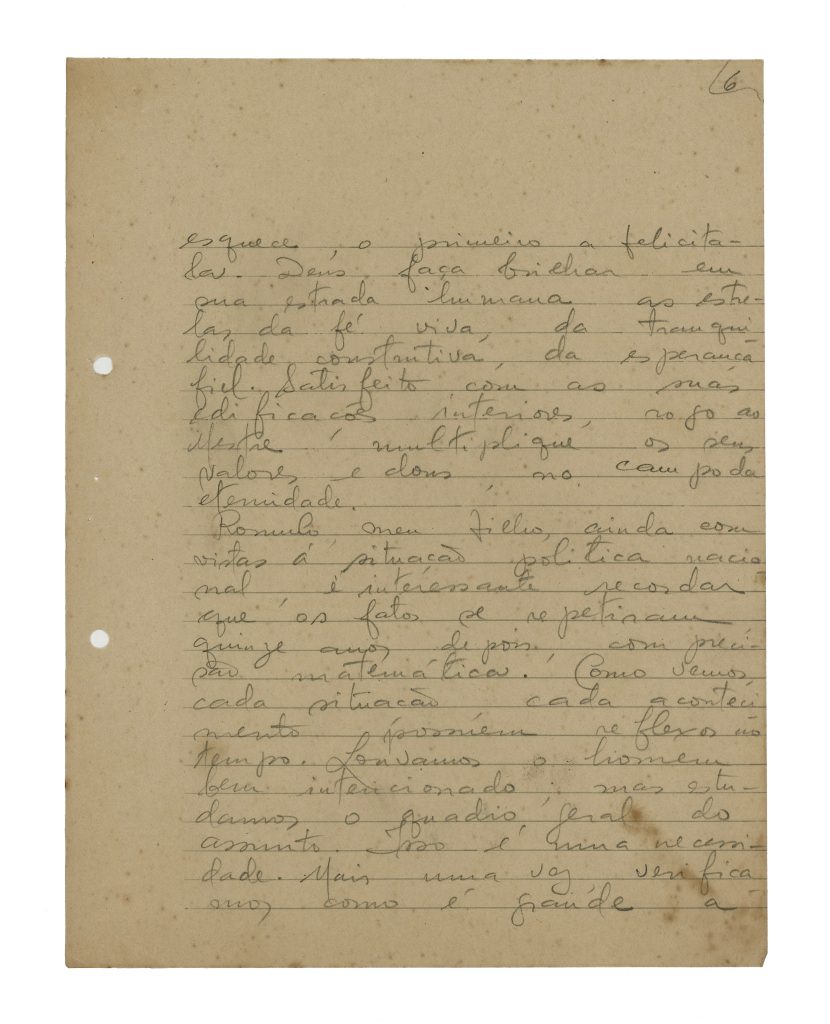 6
esquece, o primeiro a felicita-
la. Deus faça brilhar em
sua estrada humana as estre-
las da fé viva, da tranqui
lidade construtiva, da esperança
fiel. Satisfeito com as suas
edificações interiores, rogo ao
Mestre multiplique os seus
valores e dons, no campo da
eternidade.
Romulo, meu filho, ainda com
vistas á situação politica nacio
nal, é interessante recordar
que os fatos se repetiram
quinze anos depois, com preci-
são matemática. Como vemos,
cada situação cada aconteci
mento possúem reflexos no
tempo. Louvamos o homem
bem intencionado, mas estu-
damos o quadro geral do
assunto. Isso é uma necessi-
dade. Mais uma vez verifica
mos como é grande a